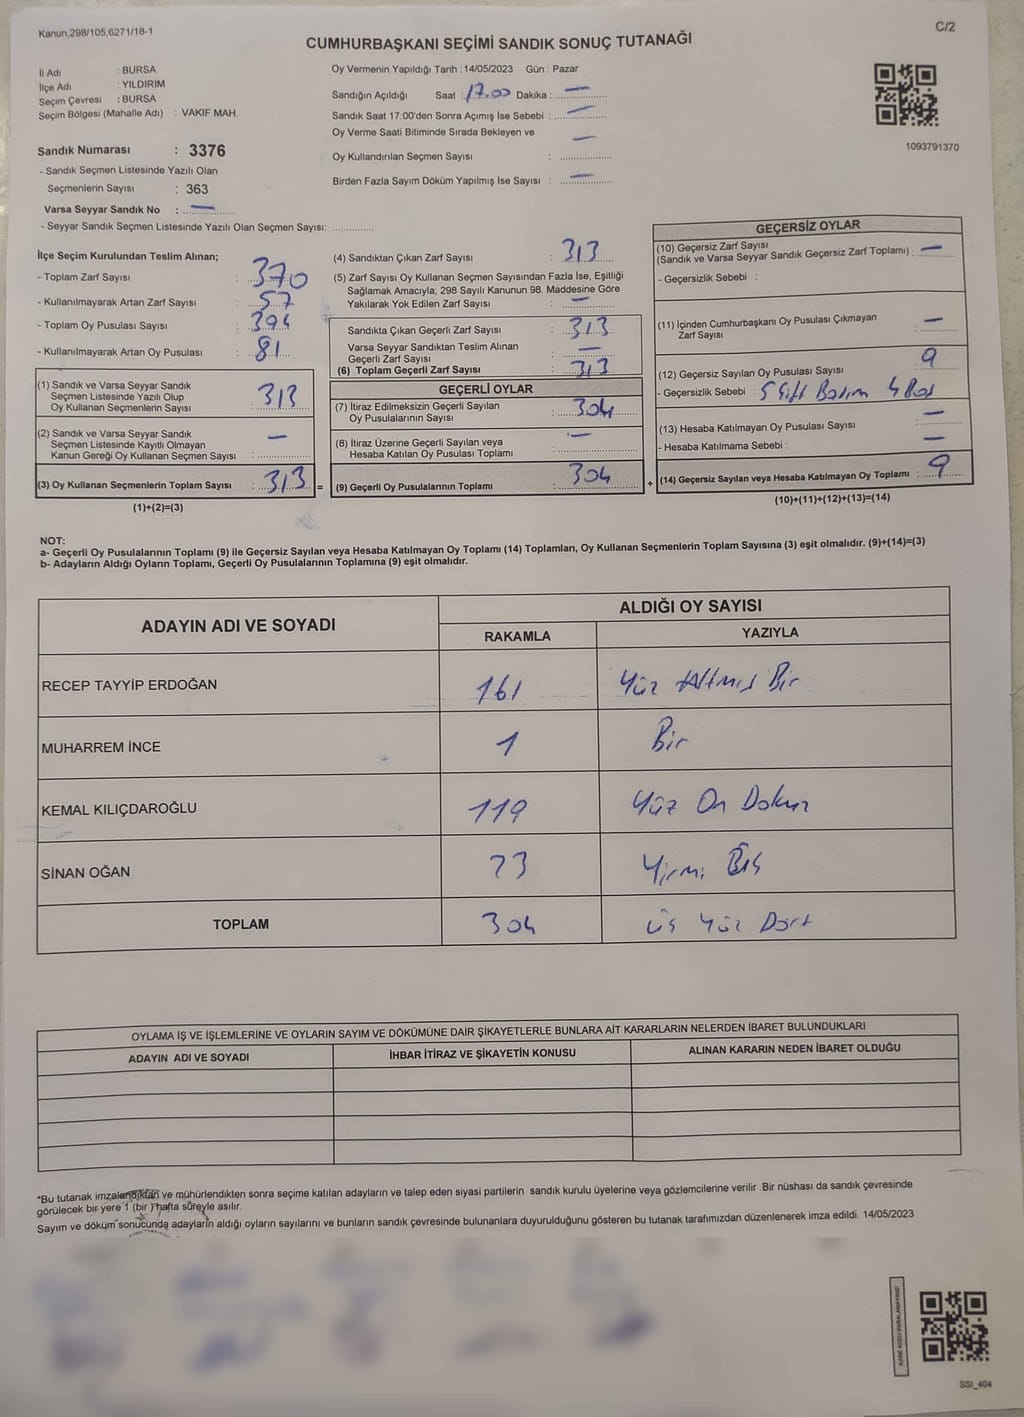 Kanun;298/105;6271/18-1
C/2
CUMHURBAŞKANI SEÇİMİ SANDIK SONUÇ TUTANAĞI
İl Adı : BURSA
İlçe Adı : YILDIRIM
Seçim Çevresi : BURSA
Seçim Bölgesi (Mahalle Adı) : VAKIF MAH.
Oy Vermenin Yapıldığı Tarih :14/05/2023 Gün : Pazar
Sandığın Açıldığı Saat : 17.00 Dakika : —
Sandık Saat 17:00'den Sonra Açımış İse Sebebi : —
Oy Verme Saati Bitiminde Sırada Bekleyen ve
Oy Kullandırılan Seçmen Sayısı : —
Birden Fazla Sayım Döküm Yapılmış İse Sayısı : —
1093791370
Sandık Numarası : 3376
- Sandık Seçmen Listesinde Yazılı Olan
Seçmenlerin Sayısı : 363
Varsa Seyyar Sandık No : —
- Seyyar Sandık Seçmen Listesinde Yazılı Olan Seçmen Sayısı: ..............
İlçe Seçim Kurulundan Teslim Alınan;
- Toplam Zarf Sayısı : 370
- Kullanılmayarak Artan Zarf Sayısı : 57
- Toplam Oy Pusulası Sayısı : 394
- Kullanılmayarak Artan Oy Pusulası : 81
(1) Sandık ve Varsa Seyyar Sandık
Seçmen Listesinde Yazılı Olup
Oy Kullanan Seçmenlerin Sayısı : 313
(2) Sandık ve Varsa Seyyar Sandık
Seçmen Listesinde Kayıtlı Olmayan
Kanun Gereği Oy Kullanan Seçmen Sayısı : —
(3) Oy Kullanan Seçmenlerin Toplam Sayısı : 313 =
(1)+(2)=(3)
(4) Sandıktan Çıkan Zarf Sayısı : 313
(5) Zarf Sayısı Oy Kullanan Seçmen Sayısından Fazla İse, Eşitliği
Sağlamak Amacıyla; 298 Sayılı Kanunun 98. Maddesine Göre
Yakılarak Yok Edilen Zarf Sayısı : —
Sandıkta Çıkan Geçerli Zarf Sayısı : 313
Varsa Seyyar Sandıktan Teslim Alınan
Geçerli Zarf Sayısı : —
(6) Toplam Geçerli Zarf Sayısı : 313
GEÇERLİ OYLAR
(7) İtiraz Edilmeksizin Geçerli Sayılan
Oy Pusulalarının Sayısı : 304
(8) İtiraz Üzerine Geçerli Sayılan veya
Hesaba Katılan Oy Pusulası Toplamı : —
(9) Geçerli Oy Pusulalarının Toplamı : 304 +
GEÇERSİZ OYLAR
(10) Geçersiz Zarf Sayısı
(Sandık ve Varsa Seyyar Sandık Geçersiz Zarf Toplamı) : —
- Geçersizlik Sebebi :
(11) İçinden Cumhurbaşkanı Oy Pusulası Çıkmayan
Zarf Sayısı : —
(12) Geçersiz Sayılan Oy Pusulası Sayısı : 9
- Geçersizlik Sebebi : 5 Çift Basım 4 Boş
(13) Hesaba Katılmayan Oy Pusulası Sayısı : —
- Hesaba Katılmama Sebebi : —
(14) Geçersiz Sayılan veya Hesaba Katılmayan Oy Toplamı : 9
(10)+(11)+(12)+(13)=(14)
NOT:
a- Geçerli Oy Pusulalarının Toplamı (9) ile Geçersiz Sayılan veya Hesaba Katılmayan Oy Toplamı (14) Toplamları, Oy Kullanan Seçmenlerin Toplam Sayısına (3) eşit olmalıdır. (9)+(14)=(3)
b- Adayların Aldığı Oyların Toplamı, Geçerli Oy Pusulalarının Toplamına (9) eşit olmalıdır.
ADAYIN ADI VE SOYADI
ALDIĞI OY SAYISI
RAKAMLA YAZIYLA
RECEP TAYYİP ERDOĞAN 161 Yüz Altmış Bir
MUHARREM İNCE 1 Bir
KEMAL KILIÇDAROĞLU 119 Yüz On Dokuz
SİNAN OĞAN 23 Yirmi Üç
TOPLAM 304 Üç Yüz Dört
OYLAMA İŞ VE İŞLEMLERİNE VE OYLARIN SAYIM VE DÖKÜMÜNE DAİR ŞİKAYETLERLE BUNLARA AİT KARARLARIN NELERDEN İBARET BULUNDUKLARI
ADAYIN ADI VE SOYADI İHBAR İTİRAZ VE ŞİKAYETİN KONUSU ALINAN KARARIN NEDEN İBARET OLDUĞU
*Bu tutanak imzalandıktan ve mühürlendikten sonra seçime katılan adayların ve talep eden siyasi partilerin sandık kurulu üyelerine veya gözlemcilerine verilir .Bir nüshası da sandık çevresinde
görülecek bir yere 1 (bir ) hafta süreyle asılır.
Sayım ve döküm sonucunda adayların aldığı oyların sayılarını ve bunların sandık çevresinde bulunanlara duyurulduğunu gösteren bu tutanak tarafımızdan düzenlenerek imza edildi. 14/05/2023
SSI_404